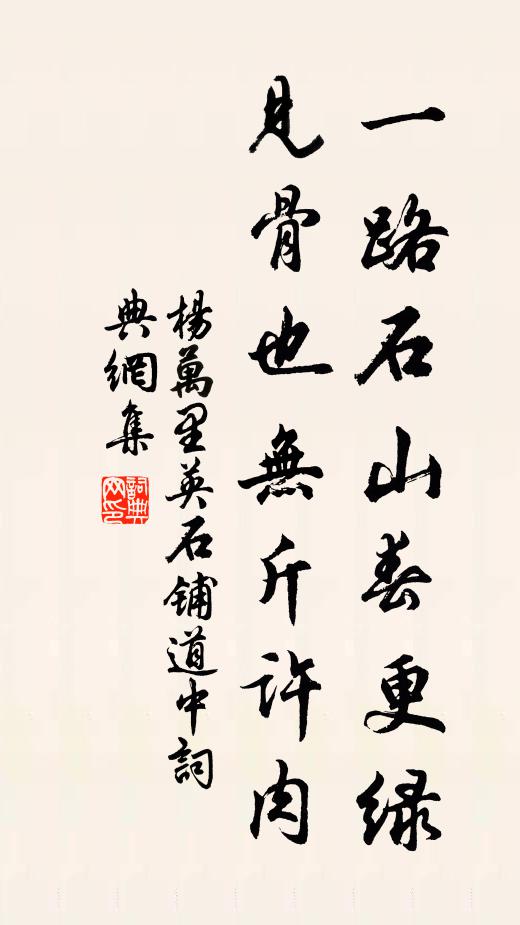 一路石山春更綠
見骨也無斤許肉
楊萬里英石鋪道中詞
典網集
詞典網印